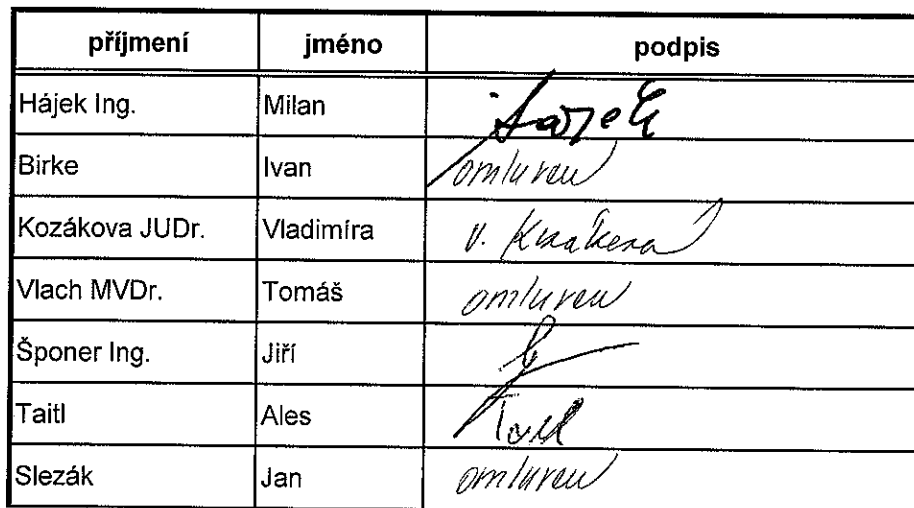 příjmení jméno podpis
Hájek Ing. Milan Hájek
Birke Ivan omluven
Kozákova JUDr. Vladimíra V. Kozáková
Vlach MVDr. Tomáš omluven
Šponer Ing. Jiří
Taitl Ales
Slezák Jan omluven